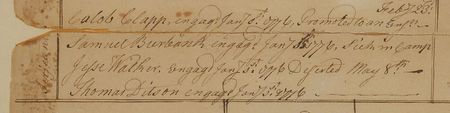 Feby 23d
Caleb Clapp, engagd Jany 1st 1776, Promoted to an Ensn
Samuel Burbank engagd Jany 1st 1776, Sick in Camp
Jesse Walker, engagd Jany 1st 1776 Deserted May 8th
Thomas Ditson engagd Jany 1st 1776